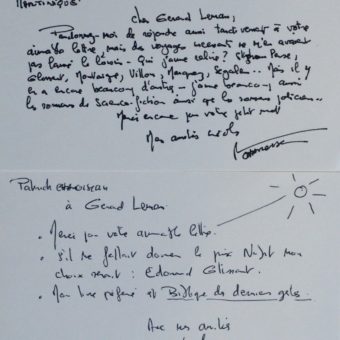 MARTINIQUE
Cher Gerard Leman,
Pardonnez-moi de répondre aussi tardivement à votre
aimable lettre, mais de voyages incessants ne m'en avaient
pas laissé le loisir. Qui j'aime relire? Perse,
Glissant, Montaigne, Villon, Segalen... Mais il y
en a encore beaucoup d'autres - j'aime beaucoup aussi
les romans de Science-fiction ainsi que les romans policiers...
Merci encore pour votre petit mot
Mes amitiés
Patrick CHAMOISEAU
à Gerard Leman
• Merci pour votre aimable lettre.
• s'il me fallait donner le prix Nobel mon
choix serait : Edouard Glissant.
• Mon livre préféré est Biblique des derniers gestes.
Avec mes amitiés